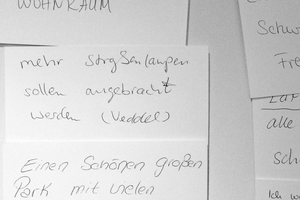 WOHNRAUM
mehr Straßenlampen
sollen angebracht
werden (Veddel)
Einen Schönen großen
Park mit vielen
Schw
Fre
alle
sch
Ich w